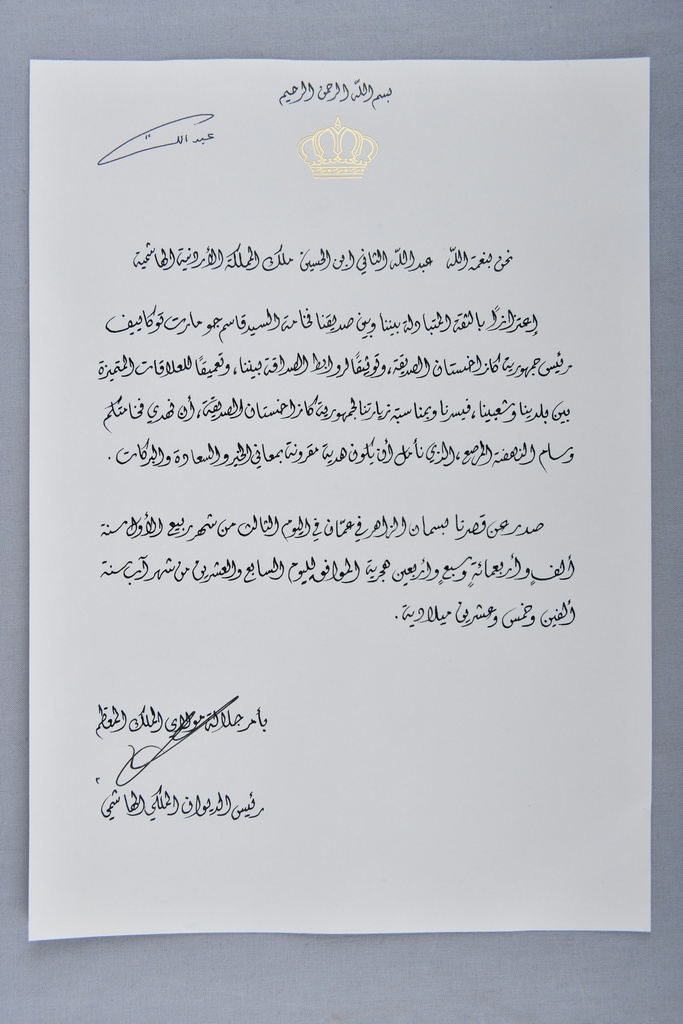 بسم الله الرحمن الرحيم
عبد الله
نحن بنعمة الله عبدالله الثاني ابن الحسين ملك المملكة الأردنية الهاشمية
إعتزازًا بالثقة المتبادلة بيننا وبين صديقنا فخامة السيد قاسم جومارت توكاييف
رئيس جمهورية كازاخستان الصديقة، وتوثيقًا لروابط الصداقة بيننا، وتعميقًا للعلاقات المتميزة
بين بلدينا وشعبينا، فيسرنا وبمناسبة زيارتنا لجمهورية كازاخستان الصديقة، أن نهدي فخامتكم
وسام النهضة المرصع، الذي نأمل أن يكون هدية مقرونة بمعاني الخير والسعادة والبركات.
صدر عن قصرنا بسمان الزاهر في عمّان في اليوم الثالث من شهر ربيع الأول سنة
ألفٍ وأربعمائةٍ وسبعٍ وأربعين هجرية الموافق لليوم السابع والعشرين من شهر آب سنة
ألفين وخمس وعشرين ميلادية.
بأمر جلالة مولاي الملك المعظم
رئيس الديوان الملكي الهاشمي